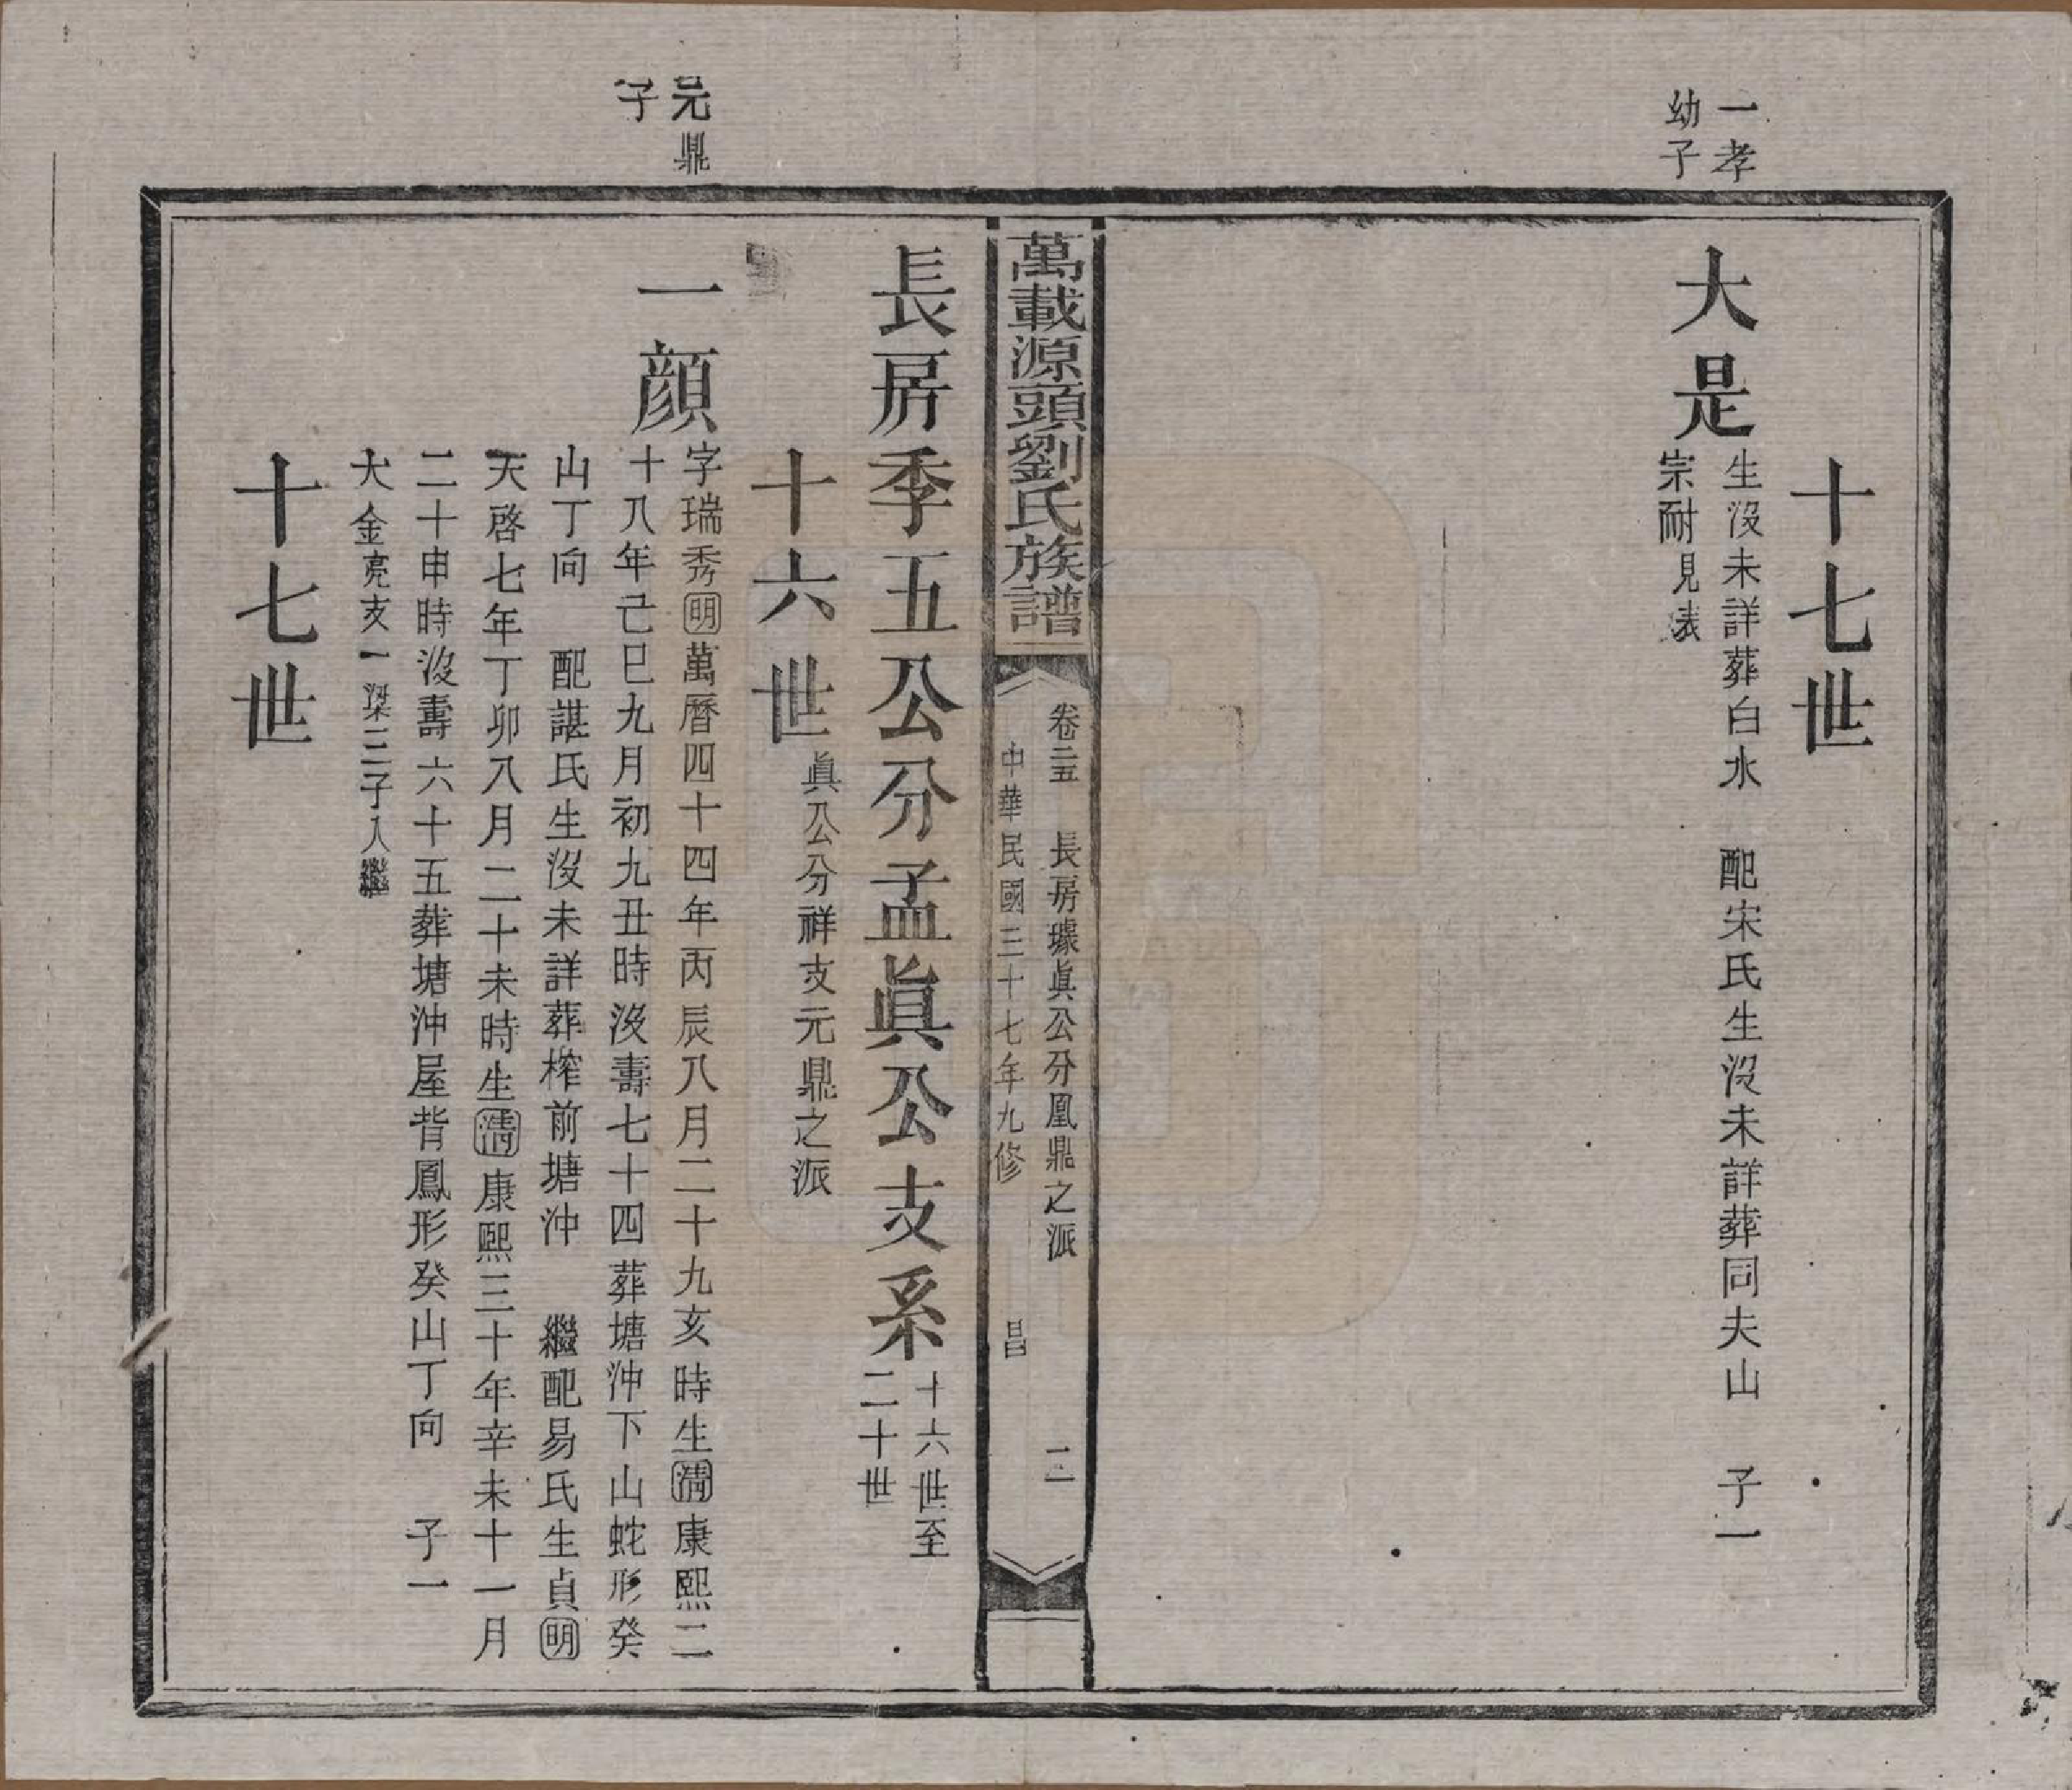 十七世
一孝
幼子
大是
生沒未詳葬白水　配宋氏生沒未詳葬同夫山　子一
宗耐見表
萬載源頭劉氏族譜
卷二五　長房璩眞公分凰鼎之派　二
中華民國三十七年九修　昌
長房季五公分孟眞公支系
十六世至
二十世
十六世
眞公分祥支元鼎之派
元鼎
子
一顔
字瑞秀明萬曆四十四年丙辰八月二十九亥時生清康熙二
十八年己巳九月初九丑時沒壽七十四葬塘沖下山蛇形癸
山丁向　配諶氏生沒未詳葬榨前塘沖　繼配易氏生貞明
天啓七年丁卯八月二十未時生清康熙三十年辛未十一月
二十申時沒壽六十五葬塘沖屋背鳳形癸山丁向　子一
大金亮支一
三子入繼
十七世